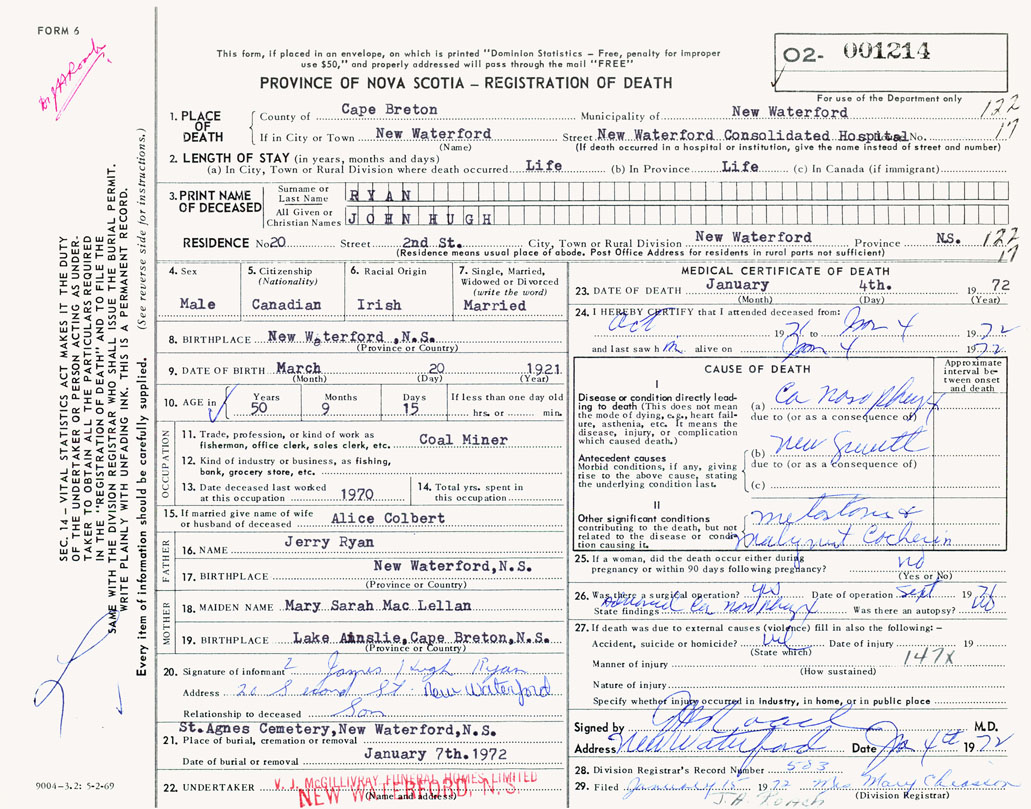 FORM 6
This form, if placed in an envelope, on which is printed "Dominion Statistics – Free, penalty for improper
use $50," and properly addressed will pass through the mail "FREE"
O2- 001214
PROVINCE OF NOVA SCOTIA – REGISTRATION OF DEATH
For use of the Department only
1. PLACE OF DEATH
County of Cape Breton Municipality of New Waterford 122
If in City or Town New Waterford Street New Waterford Consolidated Hospital No. 17
(Name) (If death occurred in a hospital or institution, give the name instead of street and number)
2. LENGTH OF STAY (in years, months and days)
(a) In City, Town or Rural Division where death occurred Life (b) In Province Life (c) In Canada (if immigrant)
3. PRINT NAME OF DECEASED
Surname or Last Name RYAN
All Given or Christian Names JOHN HUGH
RESIDENCE No 20 Street 2nd St. City, Town or Rural Division New Waterford Province N.S. 122
(Residence means usual place of abode. Post Office Address for residents in rural parts not sufficient) 17
4. Sex
Male
5. Citizenship
(Nationality)
Canadian
6. Racial Origin
Irish
7. Single, Married,
Widowed or Divorced
(write the word)
Married
8. BIRTHPLACE New Waterford ,N.S.
(Province or Country)
9. DATE OF BIRTH March 20 1921
(Month) (Day) (Year)
10. AGE in Years Months Days If less than one day old
50 9 15 hrs. or min.
OCCUPATION
11. Trade, profession, or kind of work as
fisherman, office clerk, sales clerk, etc. Coal Miner
12. Kind of industry or business, as fishing,
bank, grocery store, etc.
13. Date deceased last worked
at this occupation 1970
14. Total yrs. spent in
this occupation
15. If married give name of wife
or husband of deceased Alice Colbert
FATHER
16. NAME Jerry Ryan
17. BIRTHPLACE New Waterford,N.S.
(Province or Country)
MOTHER
18. MAIDEN NAME Mary Sarah Mac Lellan
19. BIRTHPLACE Lake Ainslie,Cape Breton,N.S.
(Province or Country)
20. Signature of informant James Hugh Ryan
Address 20 Second St. New Waterford
Relationship to deceased Son
St.Agnes Cemetery,New Waterford,N.S.
21. Place of burial, cremation or removal
Date of burial or removal January 7th.1972
22. UNDERTAKER V. J. McGILLIVRAY FUNERAL HOMES LIMITED
NEW WATERFORD, N.S.
(Name and address)
MEDICAL CERTIFICATE OF DEATH
23. DATE OF DEATH January 4th. 19 72
(Month) (Day) (Year)
24. I HEREBY CERTIFY that I attended deceased from:
Oct 1971 to Jan 4 1972
and last saw him alive on Jan 4 1972
CAUSE OF DEATH
Approximate
interval be-
tween onset
and death
I
Disease or condition directly lead-
ing to death (This does not mean
the mode of dying, e.g., heart fail-
ure, asthenia, etc. It means the
disease, injury, or complication
which caused death.)
(a) Ca nasopharyx
due to (or as a consequence of)
Antecedent causes
Morbid conditions, if any, giving
rise to the above cause, stating
the underlying condition last.
(b) New Growth
due to (or as a consequence of)
(c)
II
Other significant conditions
contributing to the death, but not
related to the disease or condi-
tion causing it.
25. If a woman, did the death occur either during
pregnancy or within 90 days following pregnancy? no
(Yes or No)
26. Was there a surgical operation? yes Date of operation Sept 1971
State findings Advanced Ca nasopharyx Was there an autopsy? no
27. If death was due to external causes (violence) fill in also the following: –
Accident, suicide or homicide? Date of injury 19
(State which) 147X
Manner of injury
(How sustained)
Nature of injury
Specify whether injury occurred in industry, in home, or in public place
Signed by M.D.
Address New Waterford Date Jan 4th 1972
28. Division Registrar's Record Number 583
29. Filed January 15 1972 Mrs Mary Chiasson
(Division Registrar)
SEC. 14 – VITAL STATISTICS ACT MAKES IT THE DUTY
OF THE UNDERTAKER OR PERSON ACTING AS UNDER-
TAKER TO OBTAIN ALL THE PARTICULARS REQUIRED
IN THE "REGISTRATION OF DEATH" AND TO FILE THE
SAME WITH THE DIVISION REGISTRAR WHO SHALL ISSUE THE BURIAL PERMIT.
WRITE PLAINLY WITH UNFADING INK. THIS IS A PERMANENT RECORD.
Every item of information should be carefully supplied. (See reverse side for instructions.)
9004-3.2: 5-2-69